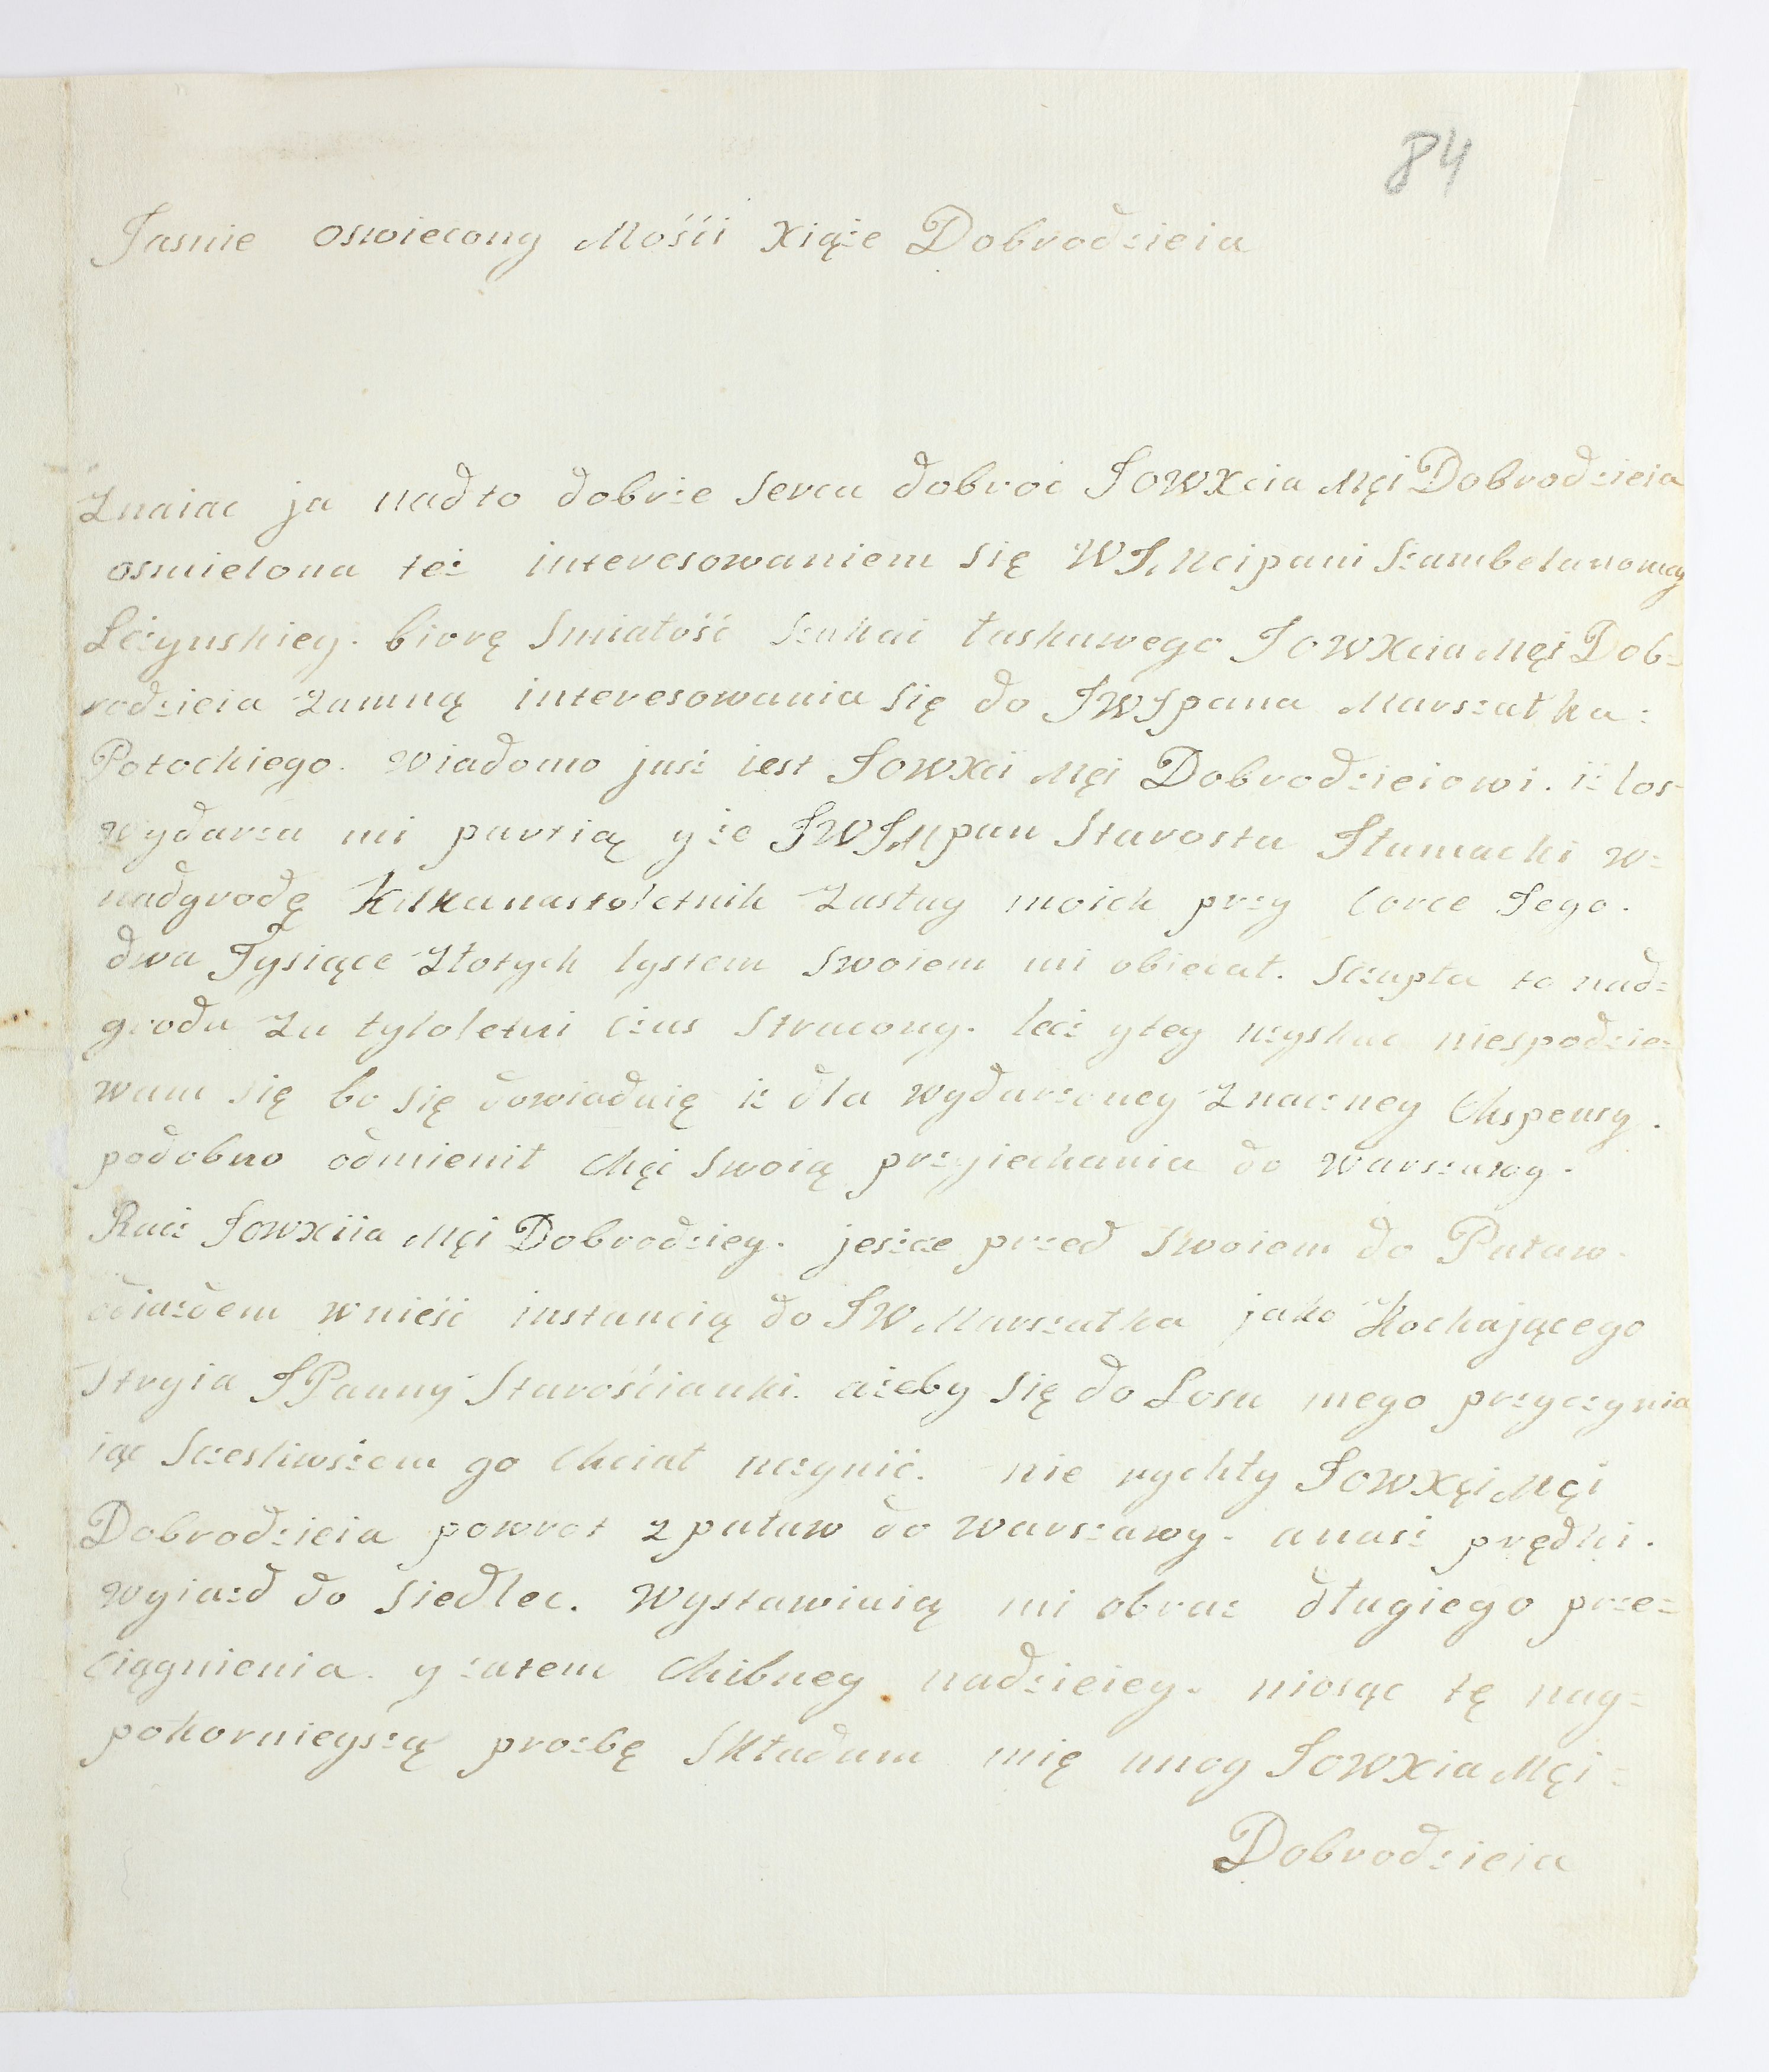 84
Jasnie oswiecony Mośći Xiąże Dobrodzieia
Znaiac ja nadto dobrże serca dobroć JOWXcia Mći Dobrodzieia
osmielona też interesowaniem się WJMcipani Szambelanowey
Leżynskiey. biorę smiałość szukać łaskawego JOWXcia Mći Dob=
rodzieia zamną interesowania się do JWJpana Marszałka=
Potockiego. wiadomo już iest JOWXci Mći Dobrodzieiowi. iż los
wydarza mi partią y że JWJMpan Starosta Tłumacki w=
nadgrodę Kilkanastoletnih zasług moich przy Corce Jego.
dwa Tysiące złotych lystem swoiem mi obiecał. Sczupła to nad=
groda za tyloletni czas stracony. lecz ytey uzyskac niespodzie=
wam się bo się dowiaduię iż dla wydarzoney znaczney Ekspensy.
podobno odmienił chęć swoią przyiechania do warszawy.
Racz JOWXiia Mći Dobrodziey. jeszcze przed swoiem do Puław
odiazdem wnieść instancią do JW Marszałka jako Kochającego
stryia JPanny Starościanki. ażeby się do Losu mego przyczynia
iąc sczesliwszem go chciał uczynić. nie rychły JOWXći Mći
Dobrodzieia powrot z puław do warszawy. a nasz prędki.
wyiazd do siedlec. wystawiaią mi obraz długiego prze=
ciągnienia. y zatem chibney nadzieiey. niosąc tę nay=
pokornieyszą prozbę składam mię unog JOWXia Mći=
Dobrodzieia